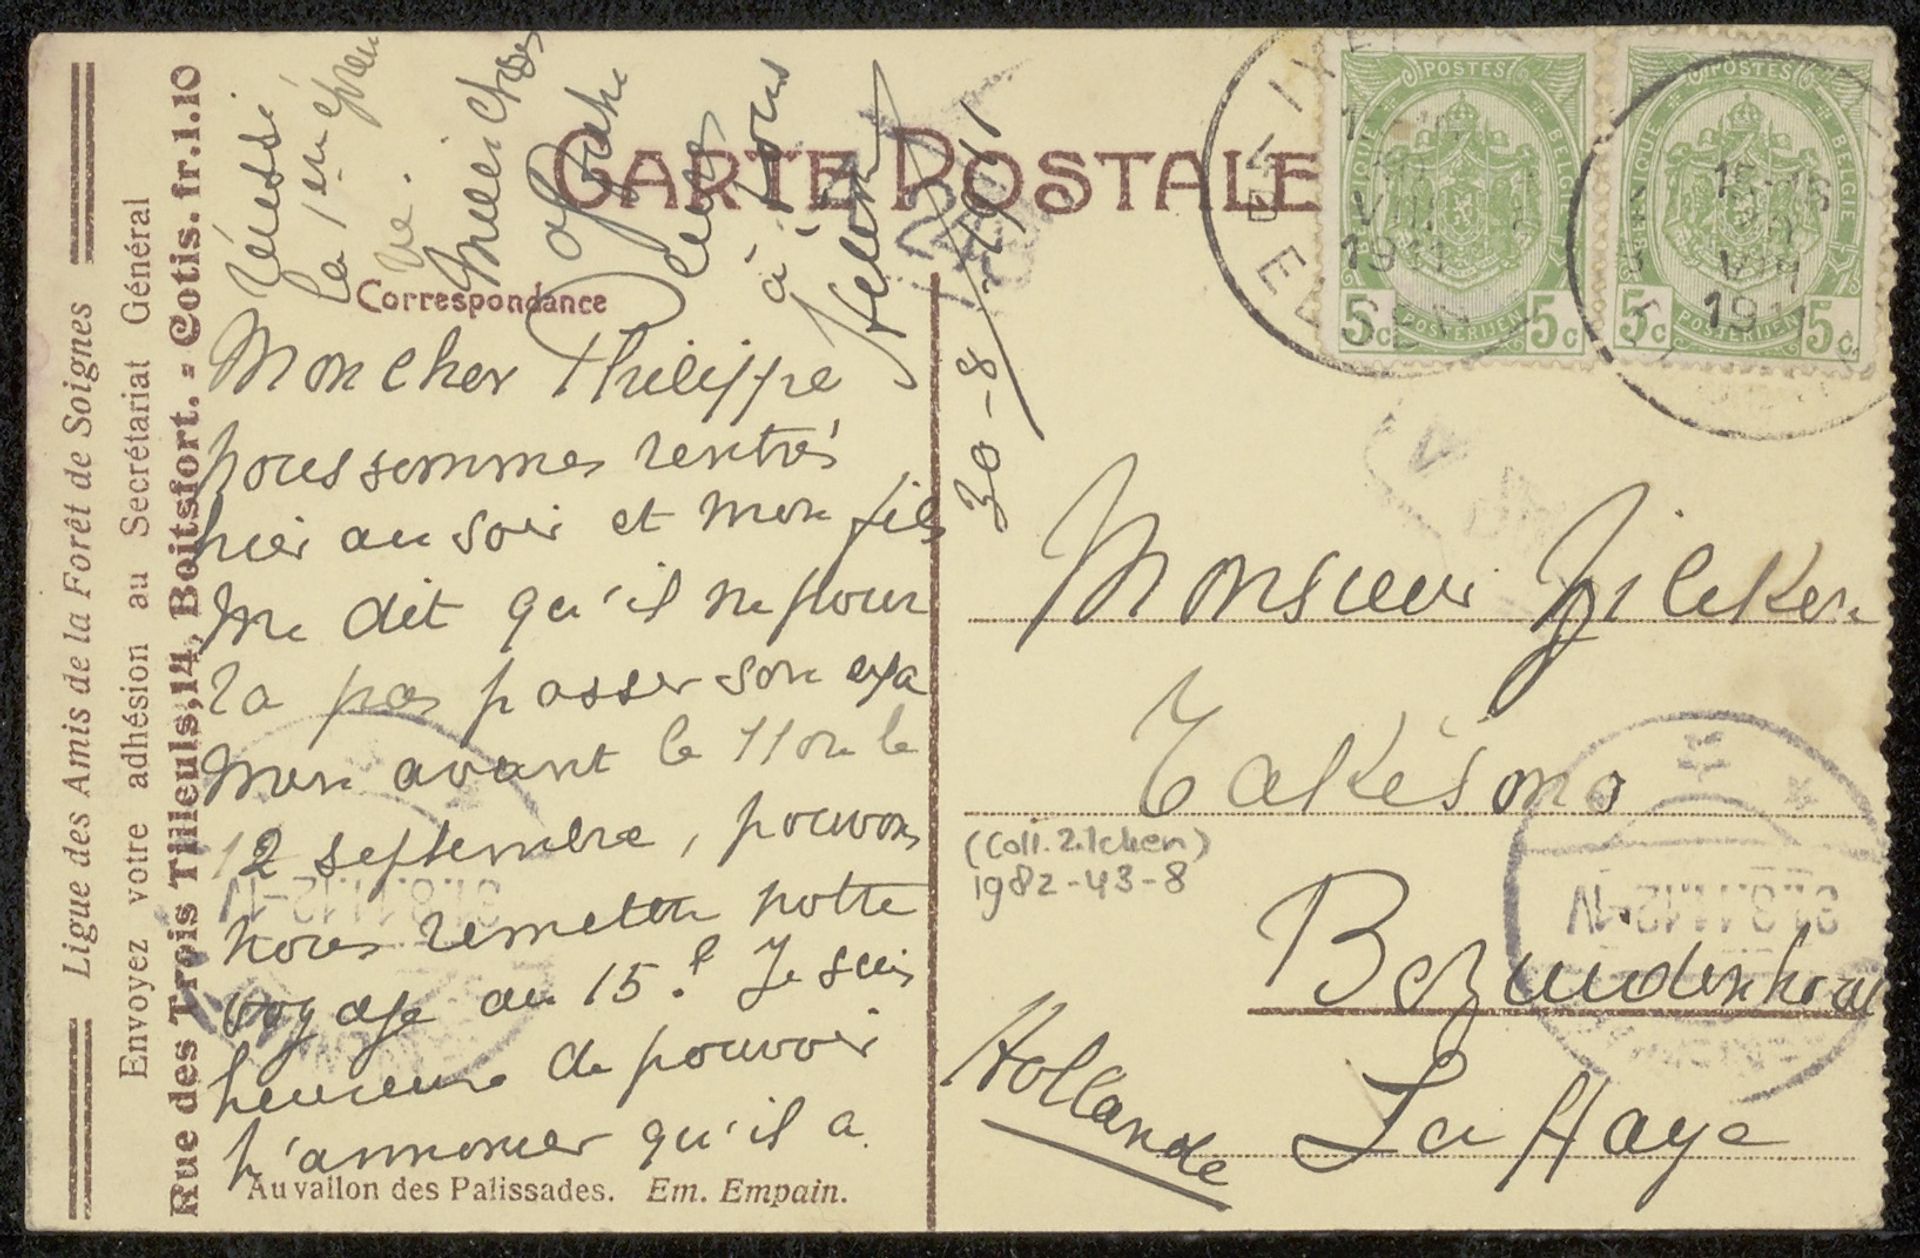 Ligue des Amis de la Forêt de Soignes
Envoyez votre adhésion au Secrétariat Général
Rue des Trois Tilleuls, 14, Boitsfort. - Cotis. fr. 1.10
CARTE POSTALE
Correspondance
Mon cher Philippe
nous sommes rentrés
hier au soir et mon fils
me dit qu'il ne pour
ra pas passer son exa
men avant le 11 ou le
12 septembre, pouvons
nous remettre notre
voyage au 15. Je suis
heureuse de pouvoir
t'annoncer qu'il a
réussi
la 1ere épreu
ve.
à vous
30-8-1911
Au vallon des Palissades. Em. Empain.
POSTES
BELGIQUE BELGIE
5c POSTERIJEN 5c
POSTES
BELGIQUE BELGIE
5c POSTERIJEN 5c
15-16
VIII
1911
Monsieur Zilcken
(Coll. Zilcken)
1982-43-8
Bezuidenhout
La Haye
Hollande
31.8.11.12-1V